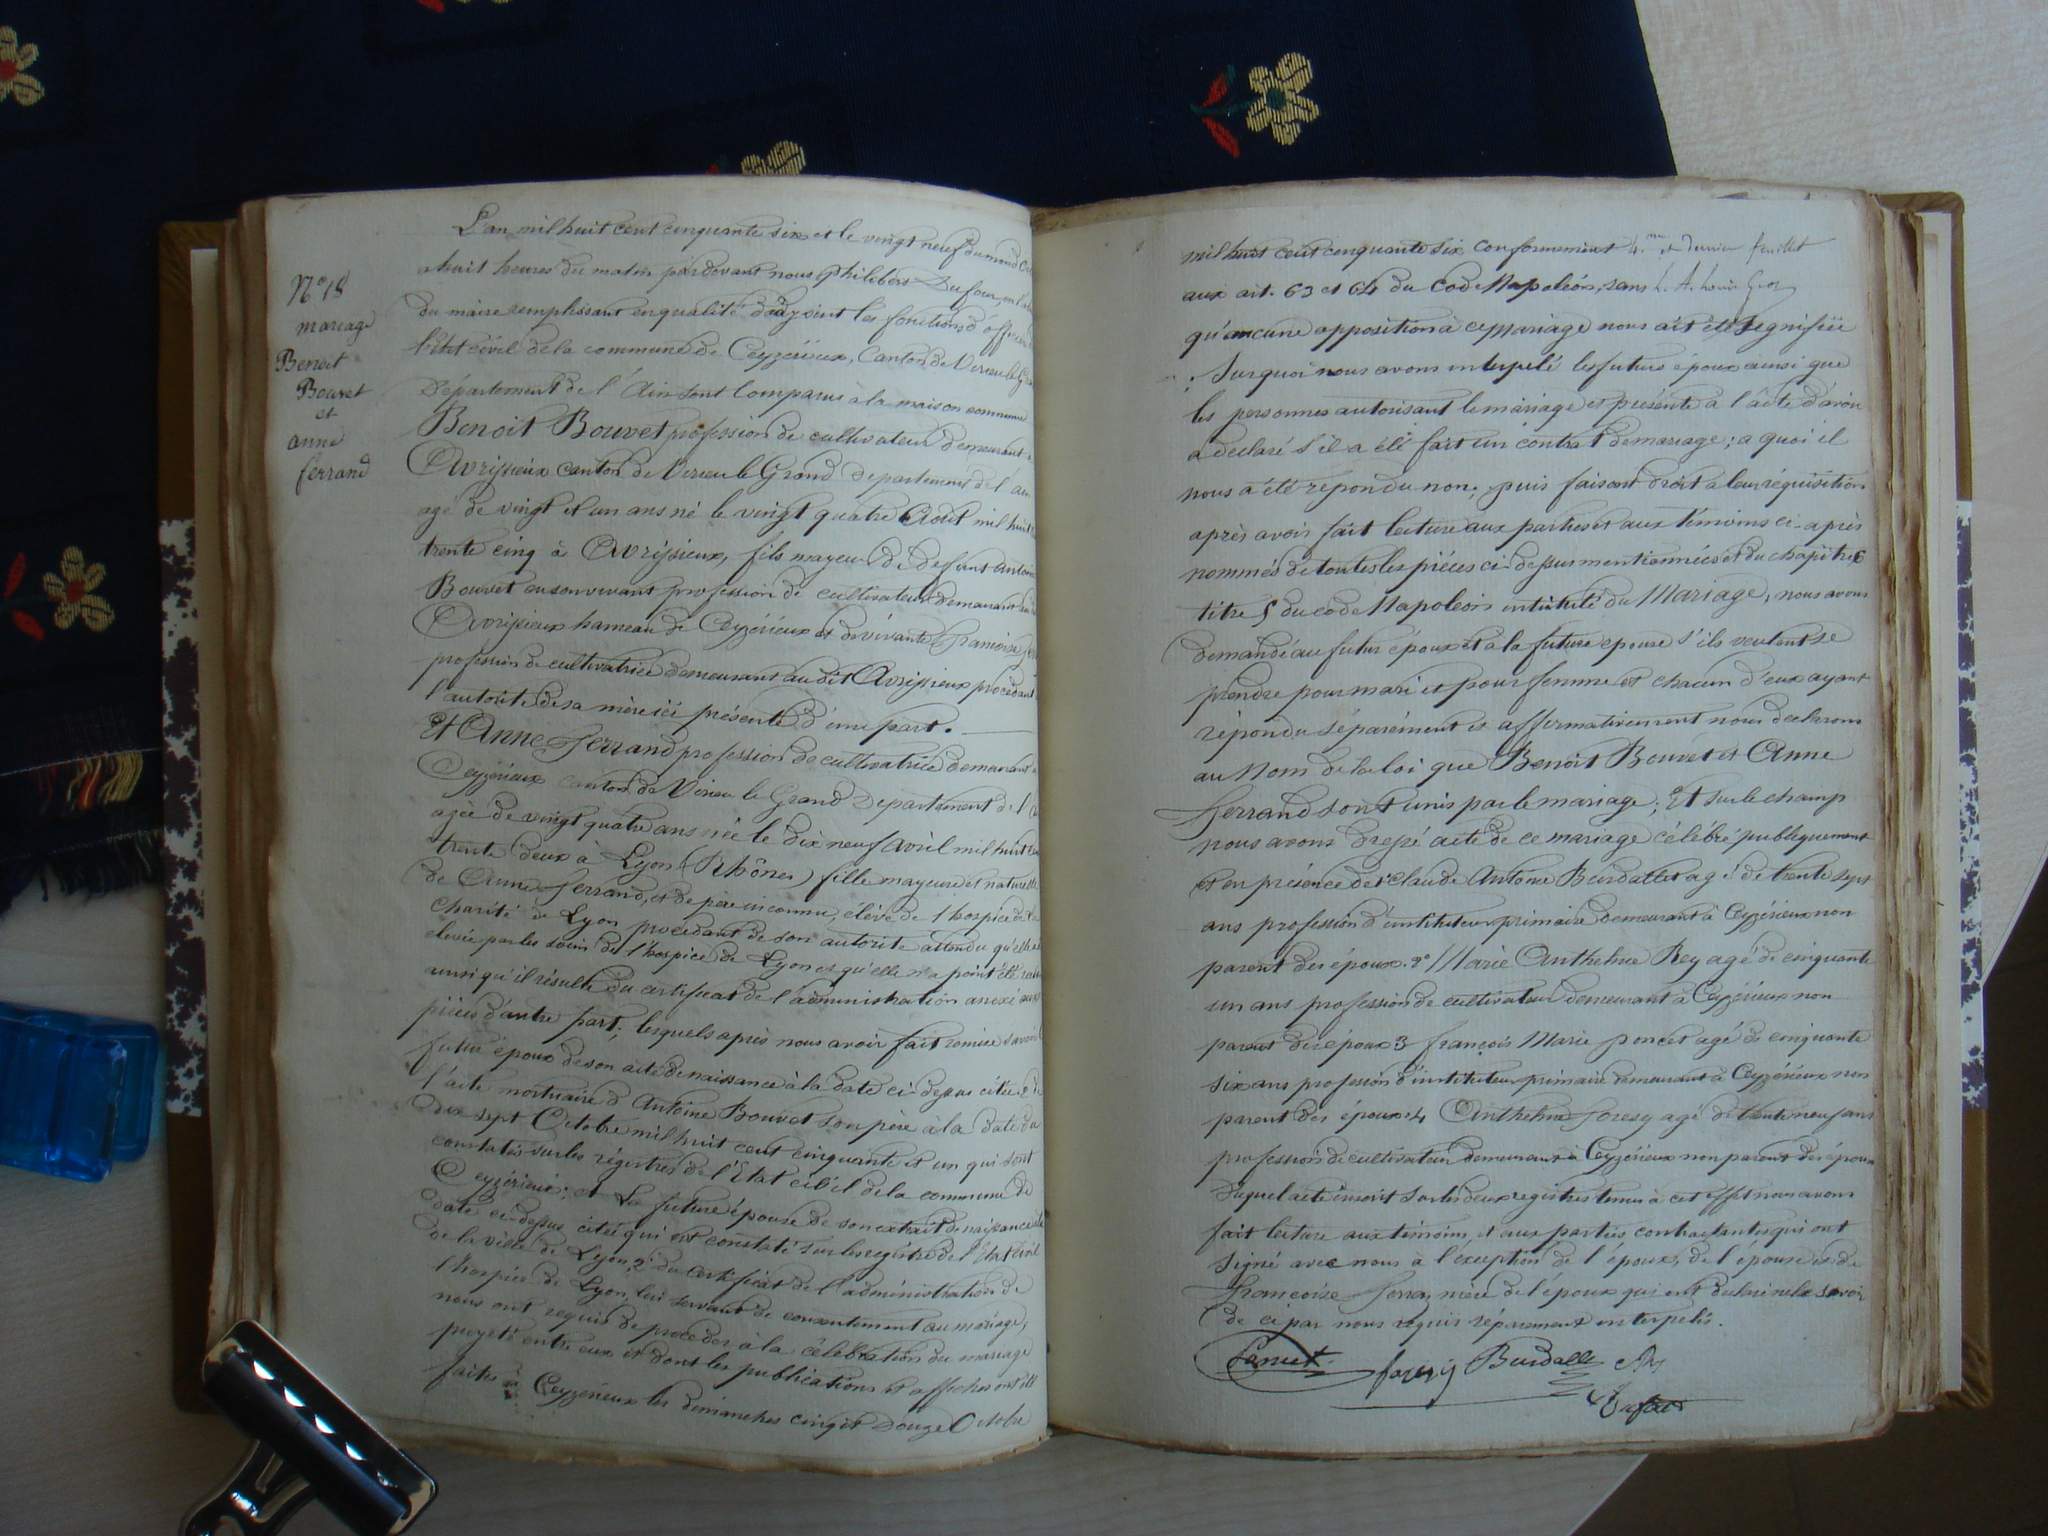 L'an mil huit cent cinquante six et le vingt neuf du mois d'Oc
a huit heures du matin pardevant nous Philibert Dufour,
du maire remplissant en qualité d'adjoint les fonctions d'offi
l'état civil de la commune de Ceyzérieux, Canton de Virieu le G
Département de l'Ain sont Comparus a la maison commune
Benoit Bouvet profession de cultivateur demeurant a
Avrissieux canton de Virieu le Grand Departement de l'ain
agé de vingt et un ans né le vingt quatre Aout mil huit
trente cinq à Avrissieux, fils mayeur de defunt Antoine
Bouvet en son vivant profession de cultivateur demeurant
Avrissieux hameau de Ceyzérieux et de vivante françoise
profession de cultivatrice demeurant au dit Avrissieux procédant
l'autorité de sa mère ici présente d'une part.
Et Anne Ferrand profession de cultivatrice demeurant à
Ceyzérieux canton de Virieu le Grand Departement de l'
agée de vingt quatre ans née le dix neuf Avril mil huit
trente deux à Lyon (Rhône) fille mayeure et naturelle
de Anne Ferrand, et de père inconnu, élève de l'hospice de
charité de Lyon procédant de son autorité attendu qu'elle
élevée par les soins de l'hospice de Lyon et qu'elle n'a point été
ainsi qu'il résulte du certificat de l'administration anexé
pièces d'autre part; lesquels après nous avoir fait remise savoir
futur époux de son acte de naissance à la date ci dessus citée
l'acte mortuaire d'Antoine Bouvet son père à la date du
dix sept Octobre mil huit cent cinquante et un qui sont
constatés sur les régistres de l'Etat civil de la commune de
Ceyzérieux; et La future épouse de son extrait de naissance
date ci-dessus citée qui est constaté sur les registre de l'Etat civil
de la ville de Lyon, 2° du certificat de l'administration de
l'hospice de Lyon, lui servant de consentement au mariage,
nous ont requis de proceder à la célébration du mariage
projeté entre eux et dont les publications et affiches ont été
faites à Ceyzerieux les dimanches cinq et douze Octobre
N° 18
mariage
Benoit
Bouvet
et
anne
ferrand
mil huit cent cinquante six conformement 4.me et dernier feuillet
aux art. 63 et 64 du Code Napoléon, sans
qu'aucune opposition à ce Mariage nous ait été signifiée
Sur quoi nous avons interpelé les futurs époux ainsi que
les personnes autorisant le mariage et présente à l'acte d'avoir
a declaré s'il a été fait un contrat de mariage; a quoi il
nous a été répondu non; puis faisant droit a leur réquisition
après avoir fait lecture aux parties et aux témoins ci-après
nommés de toutes les pièces ci-dessus mentionnées et du chapitre 6
titre 5 du code Napoléon intitulé du Mariage, nous avons
demandé au futur époux et a la future épouse s'ils veulent se
prendre pour mari et pour femme et chacun d'eux ayant
répondu séparément et affirmativement nous declarons
au Nom de la loi que Benoit Bouvet et Anne
Ferrand sont unis par le mariage; Et sur le champ
nous avons dressé acte de ce mariage célébré publiquement
et en présence de 1° Claude Antoine Burdallet agé de trente sept
ans profession d'instituteur primaire demeurant à Ceyzérieux non
parent des époux. 2° Marie Anthelme Rey agé de cinquante
un ans profession de cultivateur demeurant à Ceyzérieux non
parent des époux 3 françois Marie poncet agé de cinquante
six ans profession d'instituteur primaire demeurant à Ceyzérieux non
parent des époux 4 Anthelme foresy agé de trente neuf ans
profession de cultivateur demeurant à Ceyzérieux non parent des époux
Duquel acte inscrit sur les deux registres tenus à cet effet nous avons
fait lecture aux témoins, et aux parties contractantes qui ont
signé avec nous à l'exception de l'époux, de l'épouse et de
françoise mère de l'époux qui ont declaré ne le savoir
de ce par nous requis séparement interpelés.
foresy Burdallet Rey
Dufour